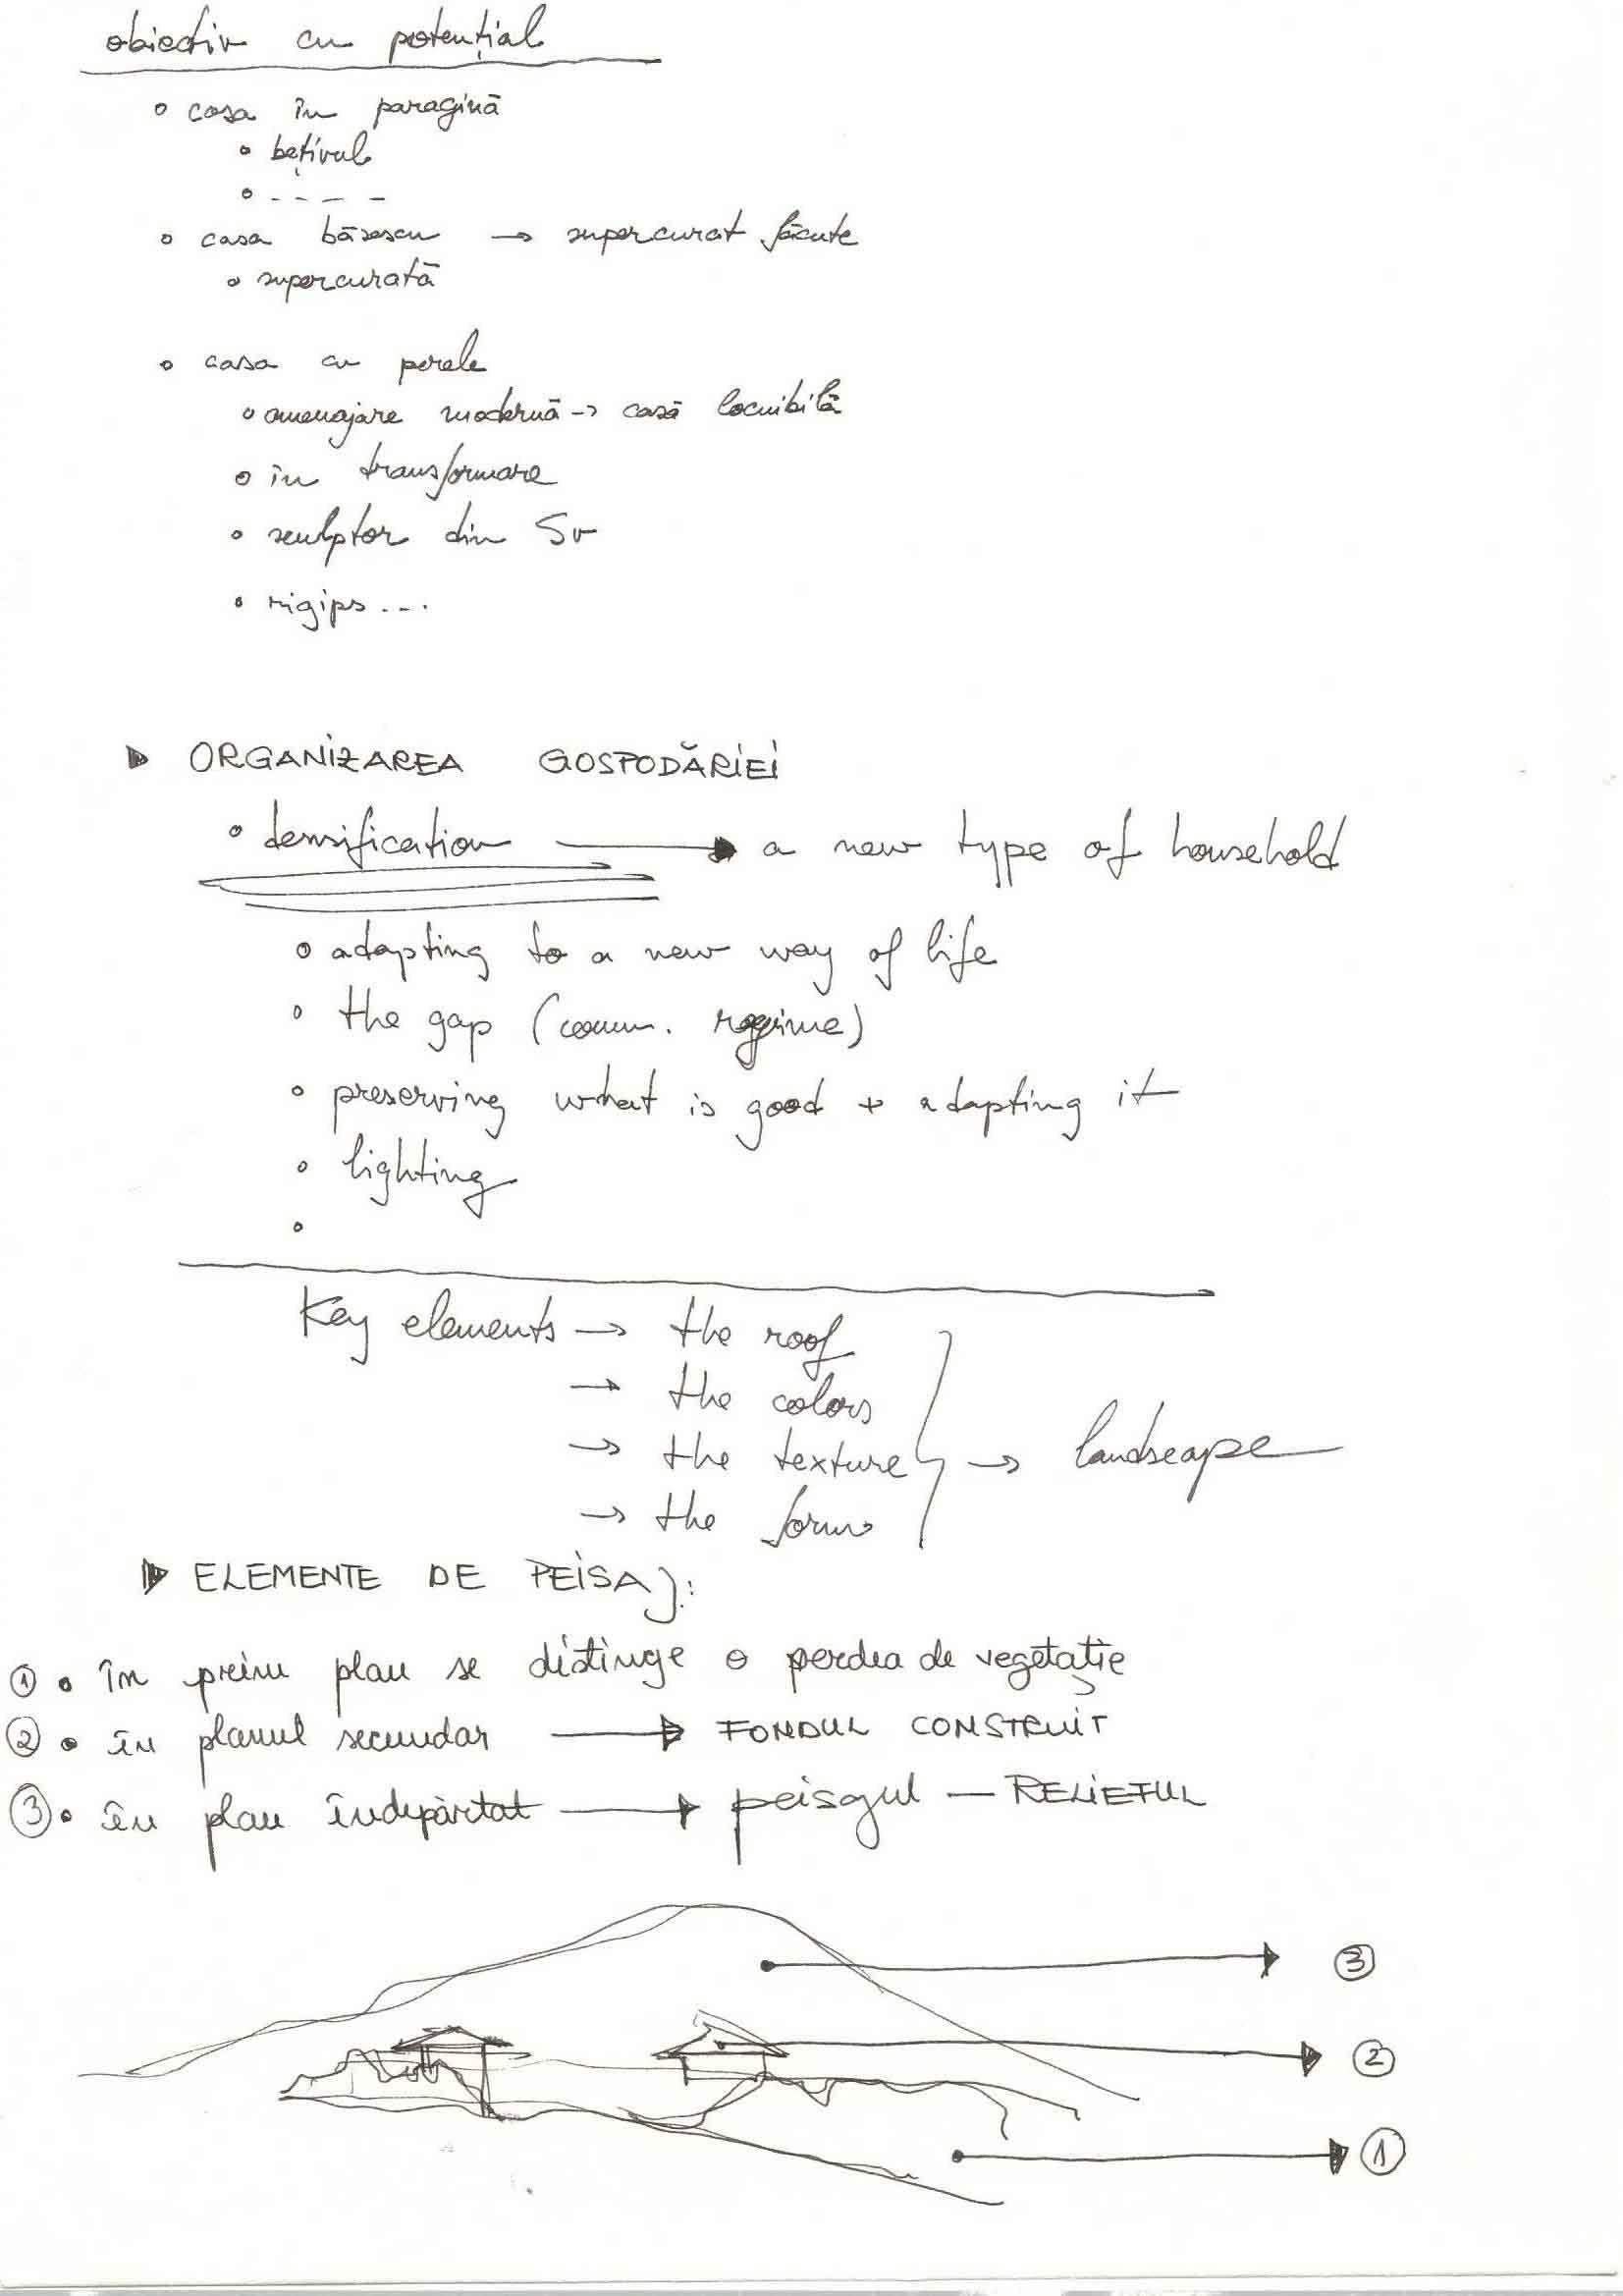 obiectiv cu potențial
◦ casa în paragină
◦ bețivul
◦ - - - -
◦ casa băsescu → supercurat făcute
◦ supercurată
◦ casa cu perele
◦ amenajare modernă → casă locuibilă
◦ în transformare
◦ sculptor din Sv
◦ rigips ...
▶ ORGANIZAREA GOSPODĂRIEI
• densification → a new type of household
◦ adapting to a new way of life
◦ the gap (comm. regime)
◦ preserving what is good + adapting it
◦ lighting
◦
Key elements → the roof
→ the colors
→ the texture → landscape
→ the form
▶ ELEMENTE DE PEISAJ:
① • în prim plan se distinge o perdea de vegetație
② • în planul secundar → FONDUL CONSTRUIT
③ • în plan îndepărtat → peisajul — RELIEFUL
③
②
①